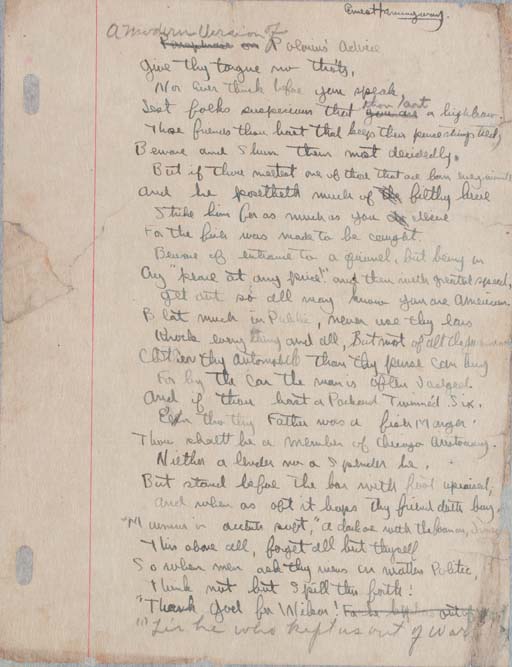 Ernest Hemingway.
A modern Version of
Paraphrase on Polonius' Advice
Give thy tongue no thots,
Nor ever think before you speak,
Lest folks suspicious that thou art a highbrow.
Those friends thou hast that keep their purse strings tied,
Beware and Shun them most decidedly.
But if thou meetest one of those that are born every minute
And he posteth much of filthy lucre
Strike him for as much as you
For the fish was made to be caught.
Beware of entrance to a quarrel, but being in
Cry "peace at any price!" and then with greatest speed,
Get out so all may know you are American.
Blat much in Public, never use thy ears
Knock everything and all, But most of all the
thy automobile than thy purse can buy
For by the Car the man is often Judged.
And if thou hast a Packard Twinned Six.
tho thy Father was a fish Monger
Thou shalt be a member of Chicago Aristocracy.
Niether a lender nor a Spender be.
But stand before the bar with foot upraised,
And when as oft it haps thy friend doth buy,
"Mumms" or
This above all, forget all but thyself
So when men ask thy views on matters Politic,
Think not but Spill this forth!
"Thank God for Wilson! out of
"Tis he who kept us out of War